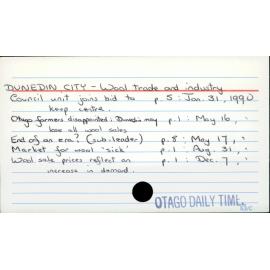 DUNEDIN CITY - Wool trade and industry
Council unit joins bid to p. 5 : Jan. 31, 1990
keep centre.
Otago farmers disappointed : Dunedin may p. 1 : May 16, "
lose all wool sales
End of an era? (sub-leader) p. 8 : May 17, "
Market for wool 'sick' p. 1 : Aug. 31, "
Wool sale prices reflect an p. 1 : Dec. 7, "
increase in demand.
OTAGO DAILY TIME